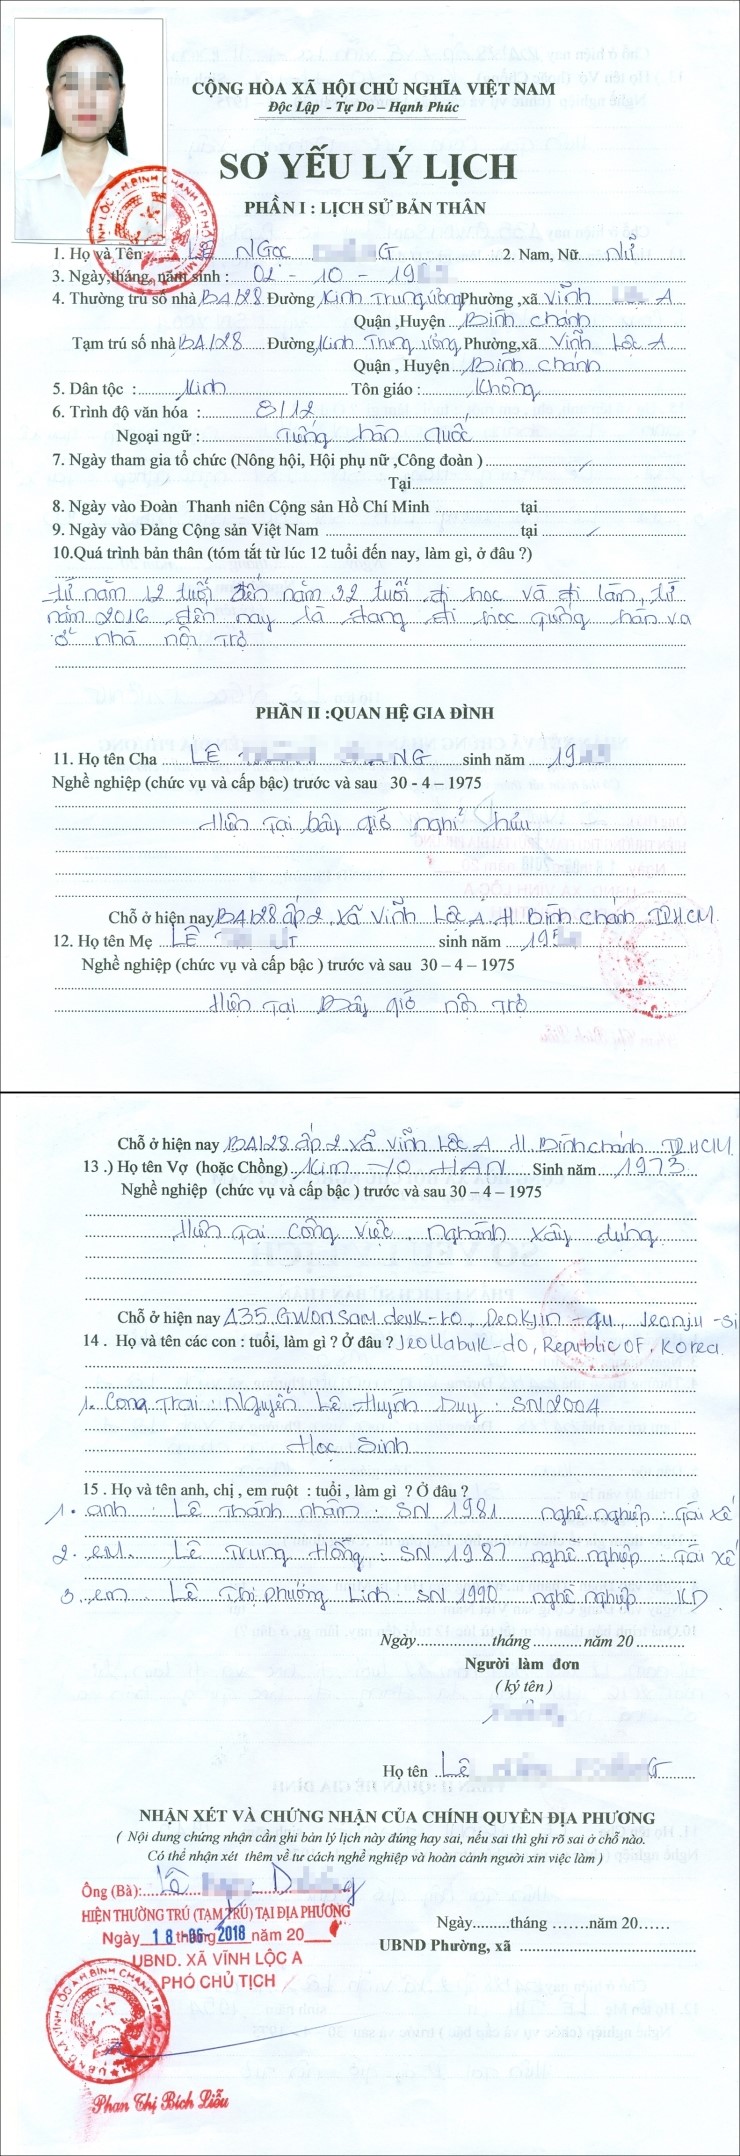 CỘNG HÒA XÃ HỘI CHỦ NGHĨA VIỆT NAM
Độc Lập - Tự Do – Hạnh Phúc
SƠ YẾU LÝ LỊCH
PHẦN I : LỊCH SỬ BẢN THÂN
1. Họ và Tên LÊ NGỌC G 2. Nam, Nữ NỮ
3. Ngày,tháng, năm sinh : 02 - 10 - 19
4. Thường trú số nhà BA128 Đường Kinh Trung ương Phường ,xã Vĩnh A
Quận ,Huyện Bình chánh
Tạm trú số nhà BA128 Đường Kinh Trung ương Phường,xã Vĩnh Lộc A
Quận , Huyện Bình chánh
5. Dân tộc : Kinh Tôn giáo : Không
6. Trình độ văn hóa : 8/12
Ngoại ngữ : Tiếng hàn quốc
7. Ngày tham gia tổ chức (Nông hội, Hội phụ nữ ,Công đoàn )
Tại
8. Ngày vào Đoàn Thanh niên Cộng sản Hồ Chí Minh tại
9. Ngày vào Đảng Cộng sản Việt Nam tại
10.Quá trình bản thân (tóm tắt từ lúc 12 tuổi đến nay, làm gì, ở đâu ?)
từ năm 12 tuổi đến năm 32 tuổi đi học và đi làm, từ
năm 2016 đến nay là đang đi học tiếng hàn và
ở nhà nội trợ
PHẦN II :QUAN HỆ GIA ĐÌNH
11. Họ tên Cha LÊ NG sinh năm 19
Nghề nghiệp (chức vụ và cấp bậc) trước và sau 30 - 4 – 1975
Hiện tại bây giờ nghỉ hưu
Chỗ ở hiện nay BA128 ấp 2, xã Vĩnh Lộc A. H Bình chánh TPHCM
12. Họ tên Mẹ LÊ sinh năm 195
Nghề nghiệp (chức vụ và cấp bậc ) trước và sau 30 – 4 – 1975
Hiện tại Bây giờ nội trợ
Chỗ ở hiện nay BA128 ấp 2 xã Vĩnh Lộc A H Bình chánh TPHCM
13 .) Họ tên Vợ (hoặc Chồng) Kim YO HAN Sinh năm 1973
Nghề nghiệp (chức vụ và cấp bậc ) trước và sau 30 – 4 – 1975
Hiện tại công việc nghành xây dựng
Chỗ ở hiện nay A35. GWonsam deuk-ro, Deokjin-gu, Jeonju-si
14 . Họ và tên các con : tuổi, làm gì ? Ở đâu ? Jeollabuk-do, Republic OF, Korea.
1. Con Trai Nguyễn Lê Huỳnh Duy : SN 2004
Học Sinh
15 . Họ và tên anh, chị , em ruột : tuổi , làm gì ? Ở đâu ?
1. anh : Lê Thành nhâm : SN 1981 nghề nghiệp : Tài xế
2. em. Lê Trung Hồng : SN 1987 nghề nghiệp : Tài xế
3. em. Lê Thị phương Linh : SN 1990 nghề nghiệp KD
Ngày tháng năm 20
Người làm đơn
( ký tên )
Họ tên Lê G
NHẬN XÉT VÀ CHỨNG NHẬN CỦA CHÍNH QUYỀN ĐỊA PHƯƠNG
( Nội dung chứng nhận cần ghi bản lý lịch này đúng hay sai, nếu sai thì ghi rõ sai ở chỗ nào.
Có thể nhận xét thêm về tư cách nghề nghiệp và hoàn cảnh người xin việc làm )
Ông (Bà): Lê
HIỆN THƯỜNG TRÚ (TẠM TRÚ) TẠI ĐỊA PHƯƠNG
Ngày 18 tháng 06- 2018 năm 20
Ngày tháng năm 20
UBND. XÃ VĨNH LỘC A
UBND Phường, xã
PHÓ CHỦ TỊCH
Phan Thị Bích Liễu